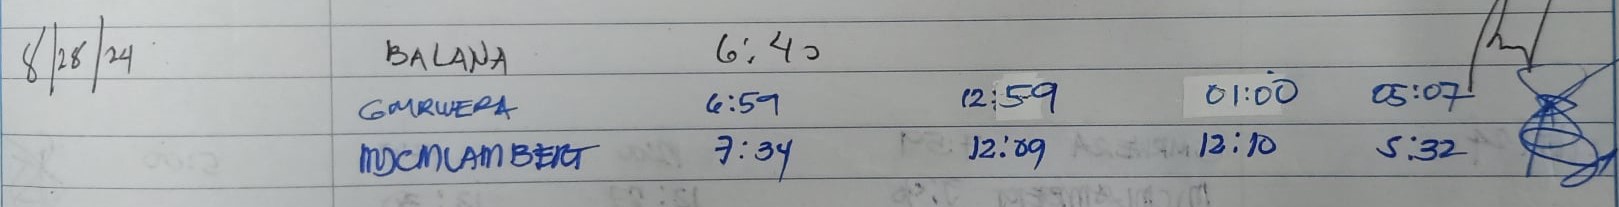 8/28/24 BALANA 6:40
GMRWERA 6:59 12:59 01:00 05:07
MDCMLAMBERT 7:34 12:09 12:10 5:32